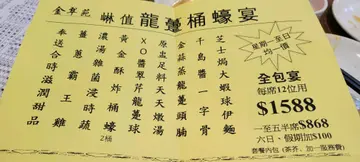 金尊苑 啉值龍躉桶蠔宴
星期一至日
均一價
芝士焗大蝦球伊麵
千島醬一字骨
金蒜蒸龍躉頭腩
原盅足料天天燉湯
XO醬翠芹龍躉球
黃金酥炸桶蠔
2桶
濃湯雜菌浸時蔬
薑蔥霸王雞
奉送合時滋潤甜品
全包宴
每席12位用
$1588
一至五半席$868
六日,假期加$100
套餐内包(茶芥,加一服務費)